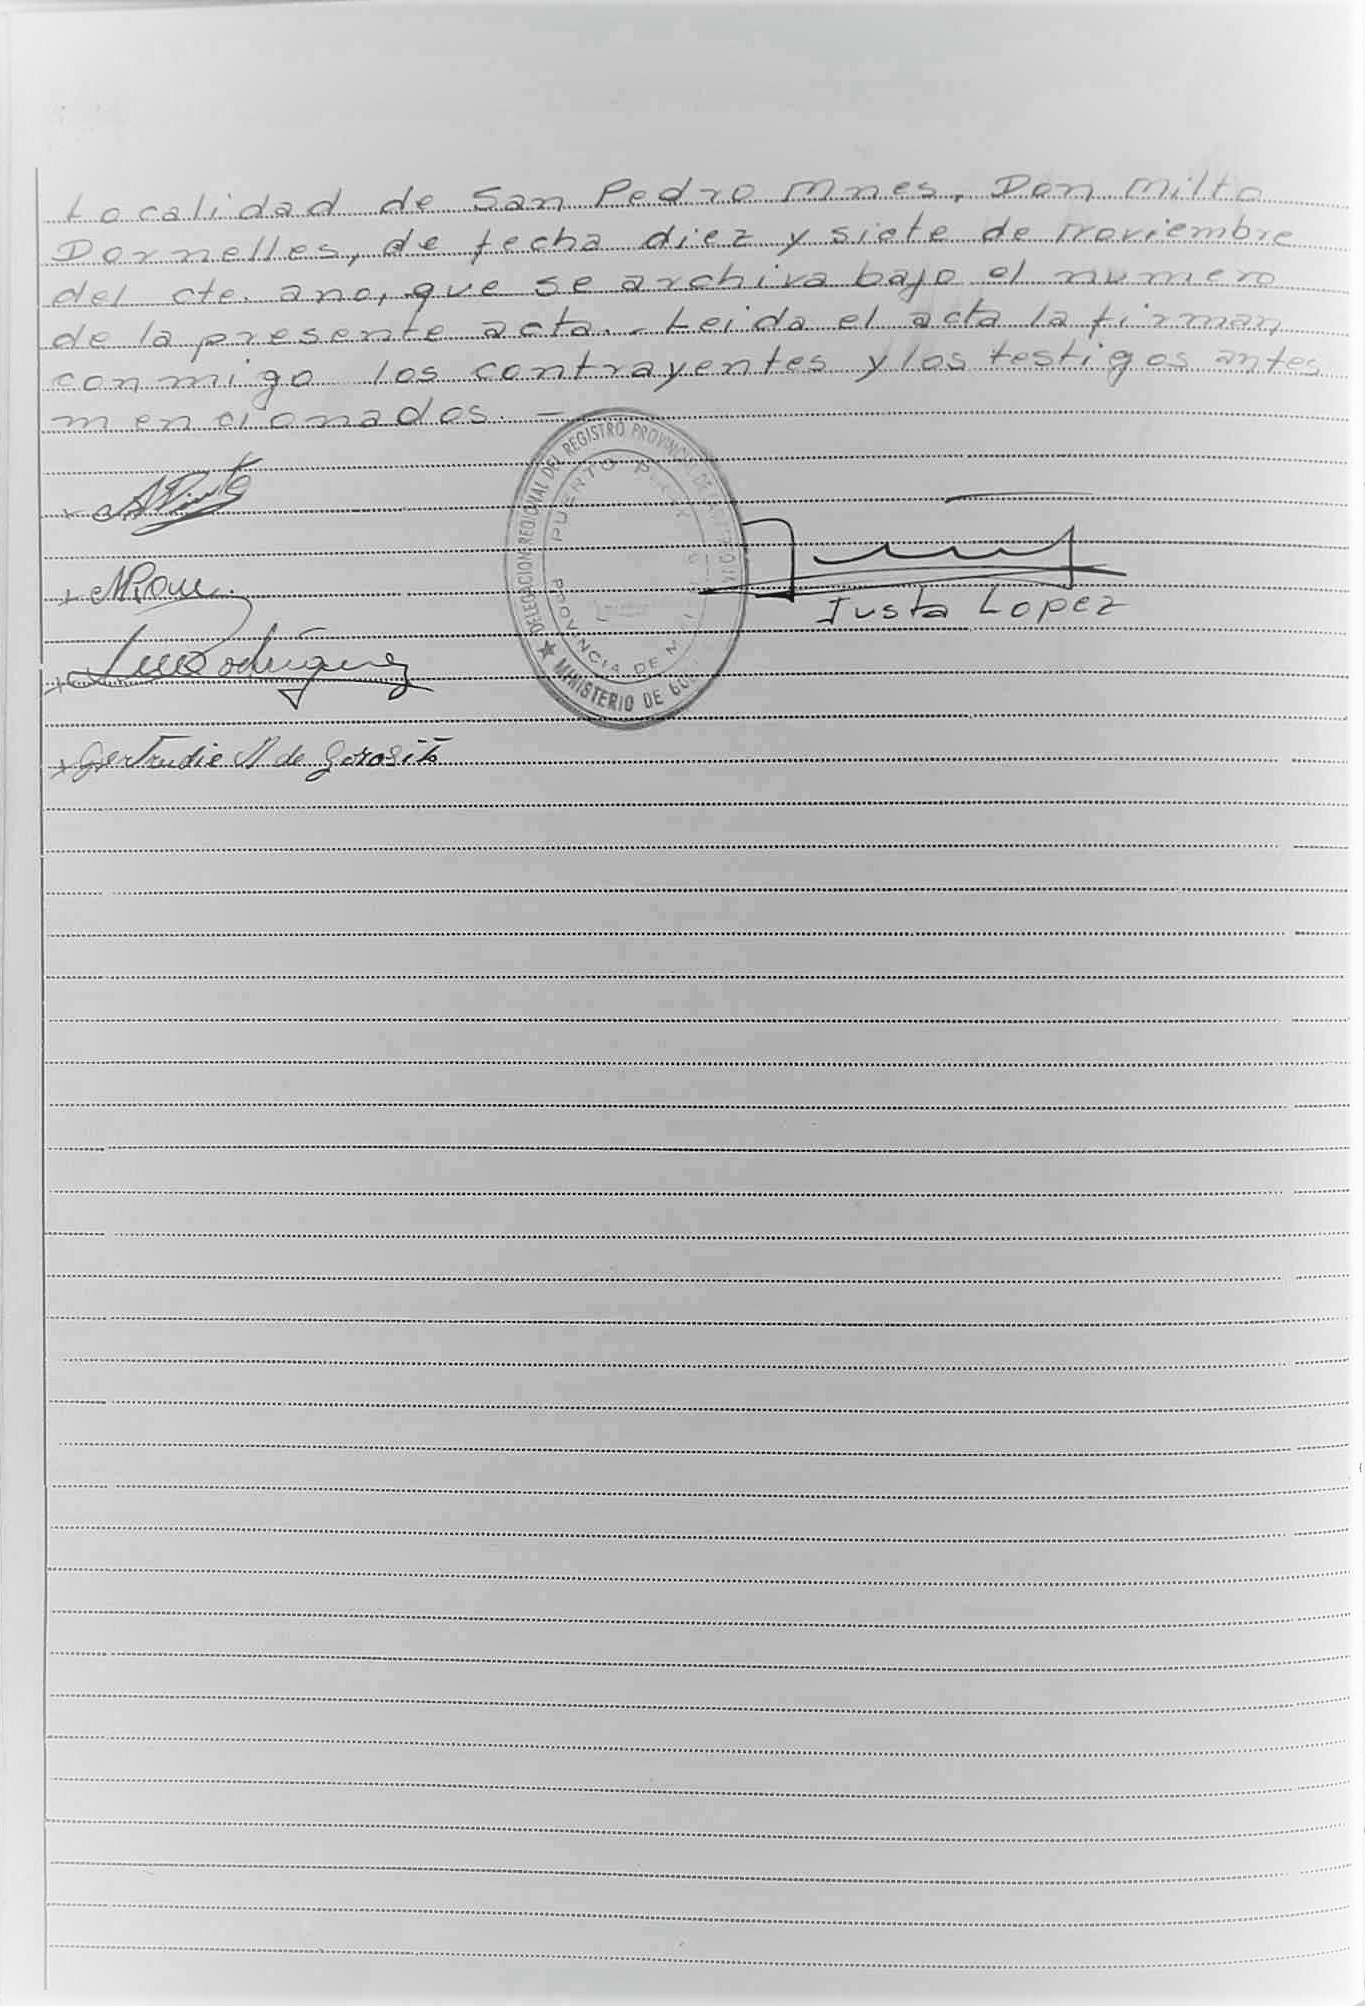 Localidad de San Pedro Mnes, Don Milto
Dornelles, de fecha diez y siete de noviembre
del cte. ano, que se archiva bajo el numero
de la presente acta. - Leida el acta la firman
conmigo los contrayentes y los testigos antes
mencionados. -
DELEGACION REGIONAL DEL REGISTRO PROVINCIAL DE
PUERTO
PROVINCIA DE
★ MINISTERIO DE
Justa Lopez
Rodriguez
Gertrudie R de Gorosito